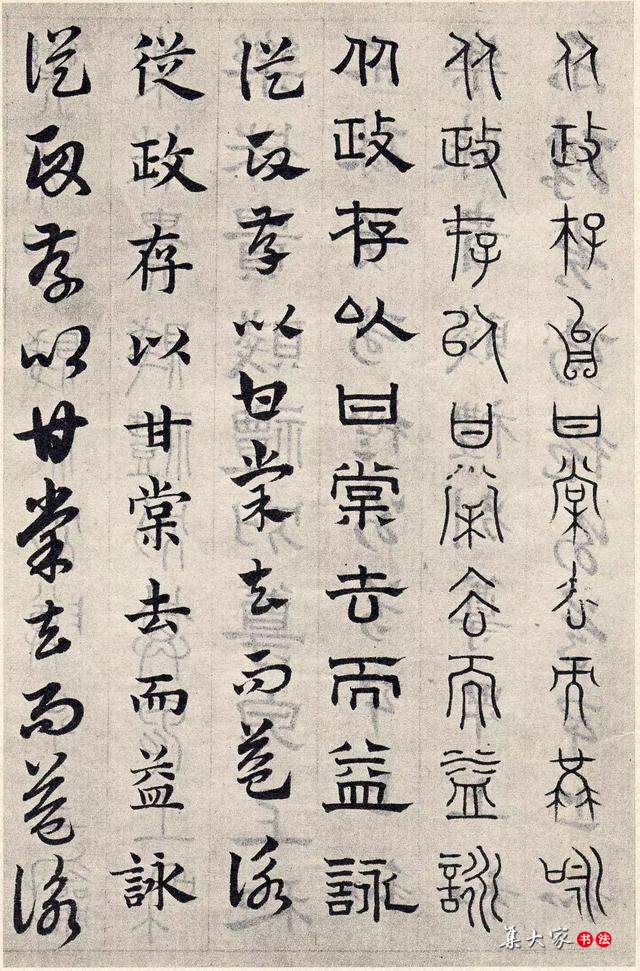 从政存以甘棠去而益咏
从政存以甘棠去而益詠
从政存以甘棠去而益詠
從政存以甘棠去而益詠
從政存以甘棠去而益詠
從政存以甘棠去而益詠
集大家书法